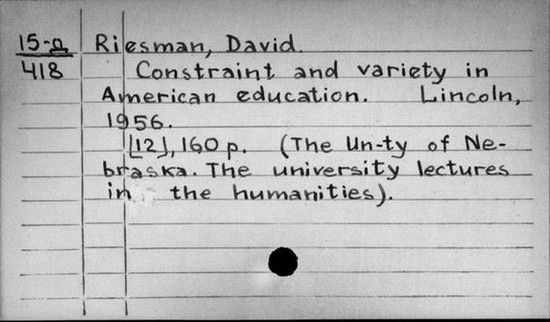 15-д Riesman, David.
418 Constraint and variety in
American education. Lincoln,
1956.
[12], 160 p. (The Un-ty of Ne-
braska. The university lectures
in the humanities).